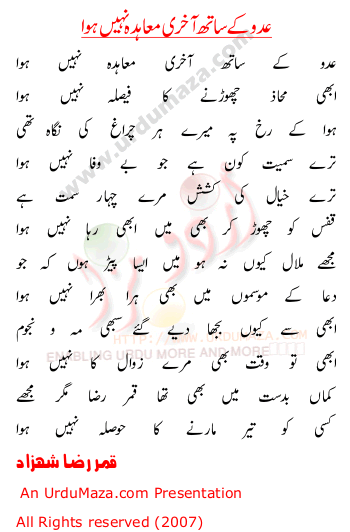 عدو کے ساتھ آخری معاہدہ نہیں ہوا
عدو کے ساتھ آخری معاہدہ نہیں ہوا
ابھی محاذ چھوڑنے کا فیصلہ نہیں ہوا
ہوا کے رخ پہ میرے ہر چراغ کی نگاہ تھی
ترے سمیت کون ہے جو بے وفا نہیں ہوا
ترے خیال کی کشش مرے چہار سمت ہے
قفس کو چھوڑ کر بھی میں ابھی رہا نہیں ہوا
مجھے ملال کیوں نہ ہو میں ایسا پیڑ ہوں کہ جو
دعا کے موسموں میں بھی ہرا بھرا نہیں ہوا
ابھی سے کیوں بجھا دیے گئے سبھی مہ و نجوم
ابھی تو وقت بھی مرے زوال کا نہیں ہوا
کماں بدست میں بھی تھا قمر رضا مگر مجھے
کسی کو تیر مارنے کا حوصلہ نہیں ہوا
قمر رضا شہزاد
An UrduMaza.com Presentation
All Rights reserved (2007)
www.urdumaza.com
اردو مزا
HTTP://WWW.URDUMAZA.COM
ENABLING URDU MORE AND MORE...